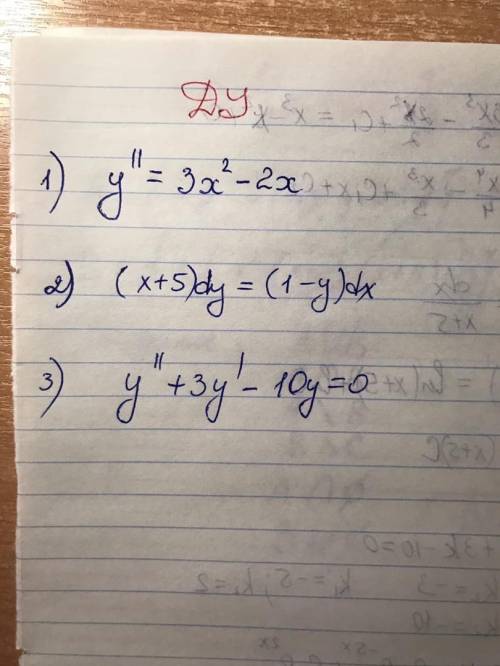 ДУ
1) y'' = 3x² - 2x
2) (x+5)dy = (1-y)dx
3) y'' + 3y' - 10y = 0